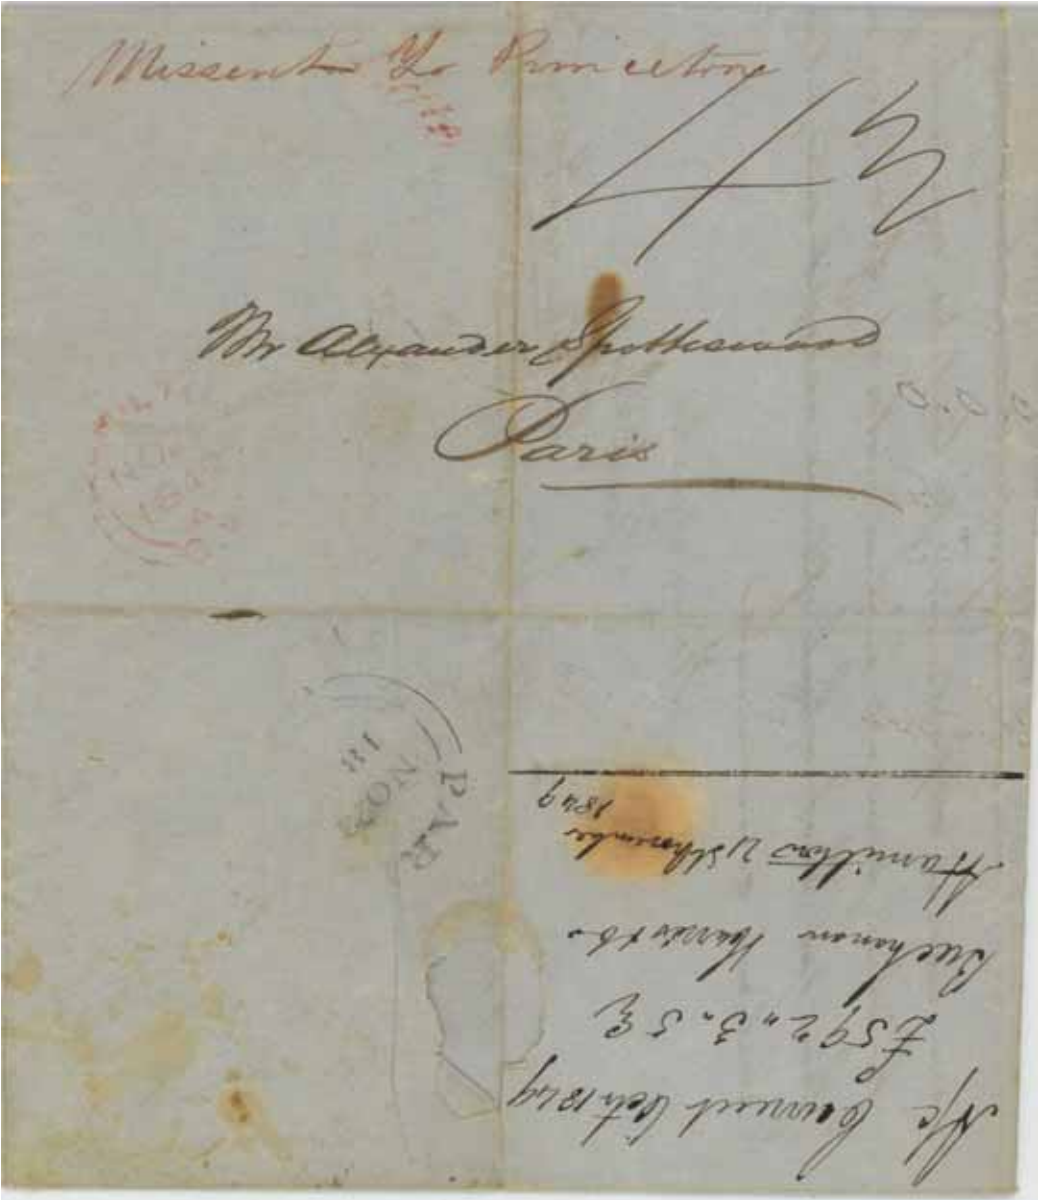 Missent To Princeton
4½
Mr Alexander Spottiswood
Paris
NOV
1849
PAR
NOV
18
A/c Current Oct 1849
£592 " 3 " 5
Buchanan Harris & Co
Hamilton 21st November
1849